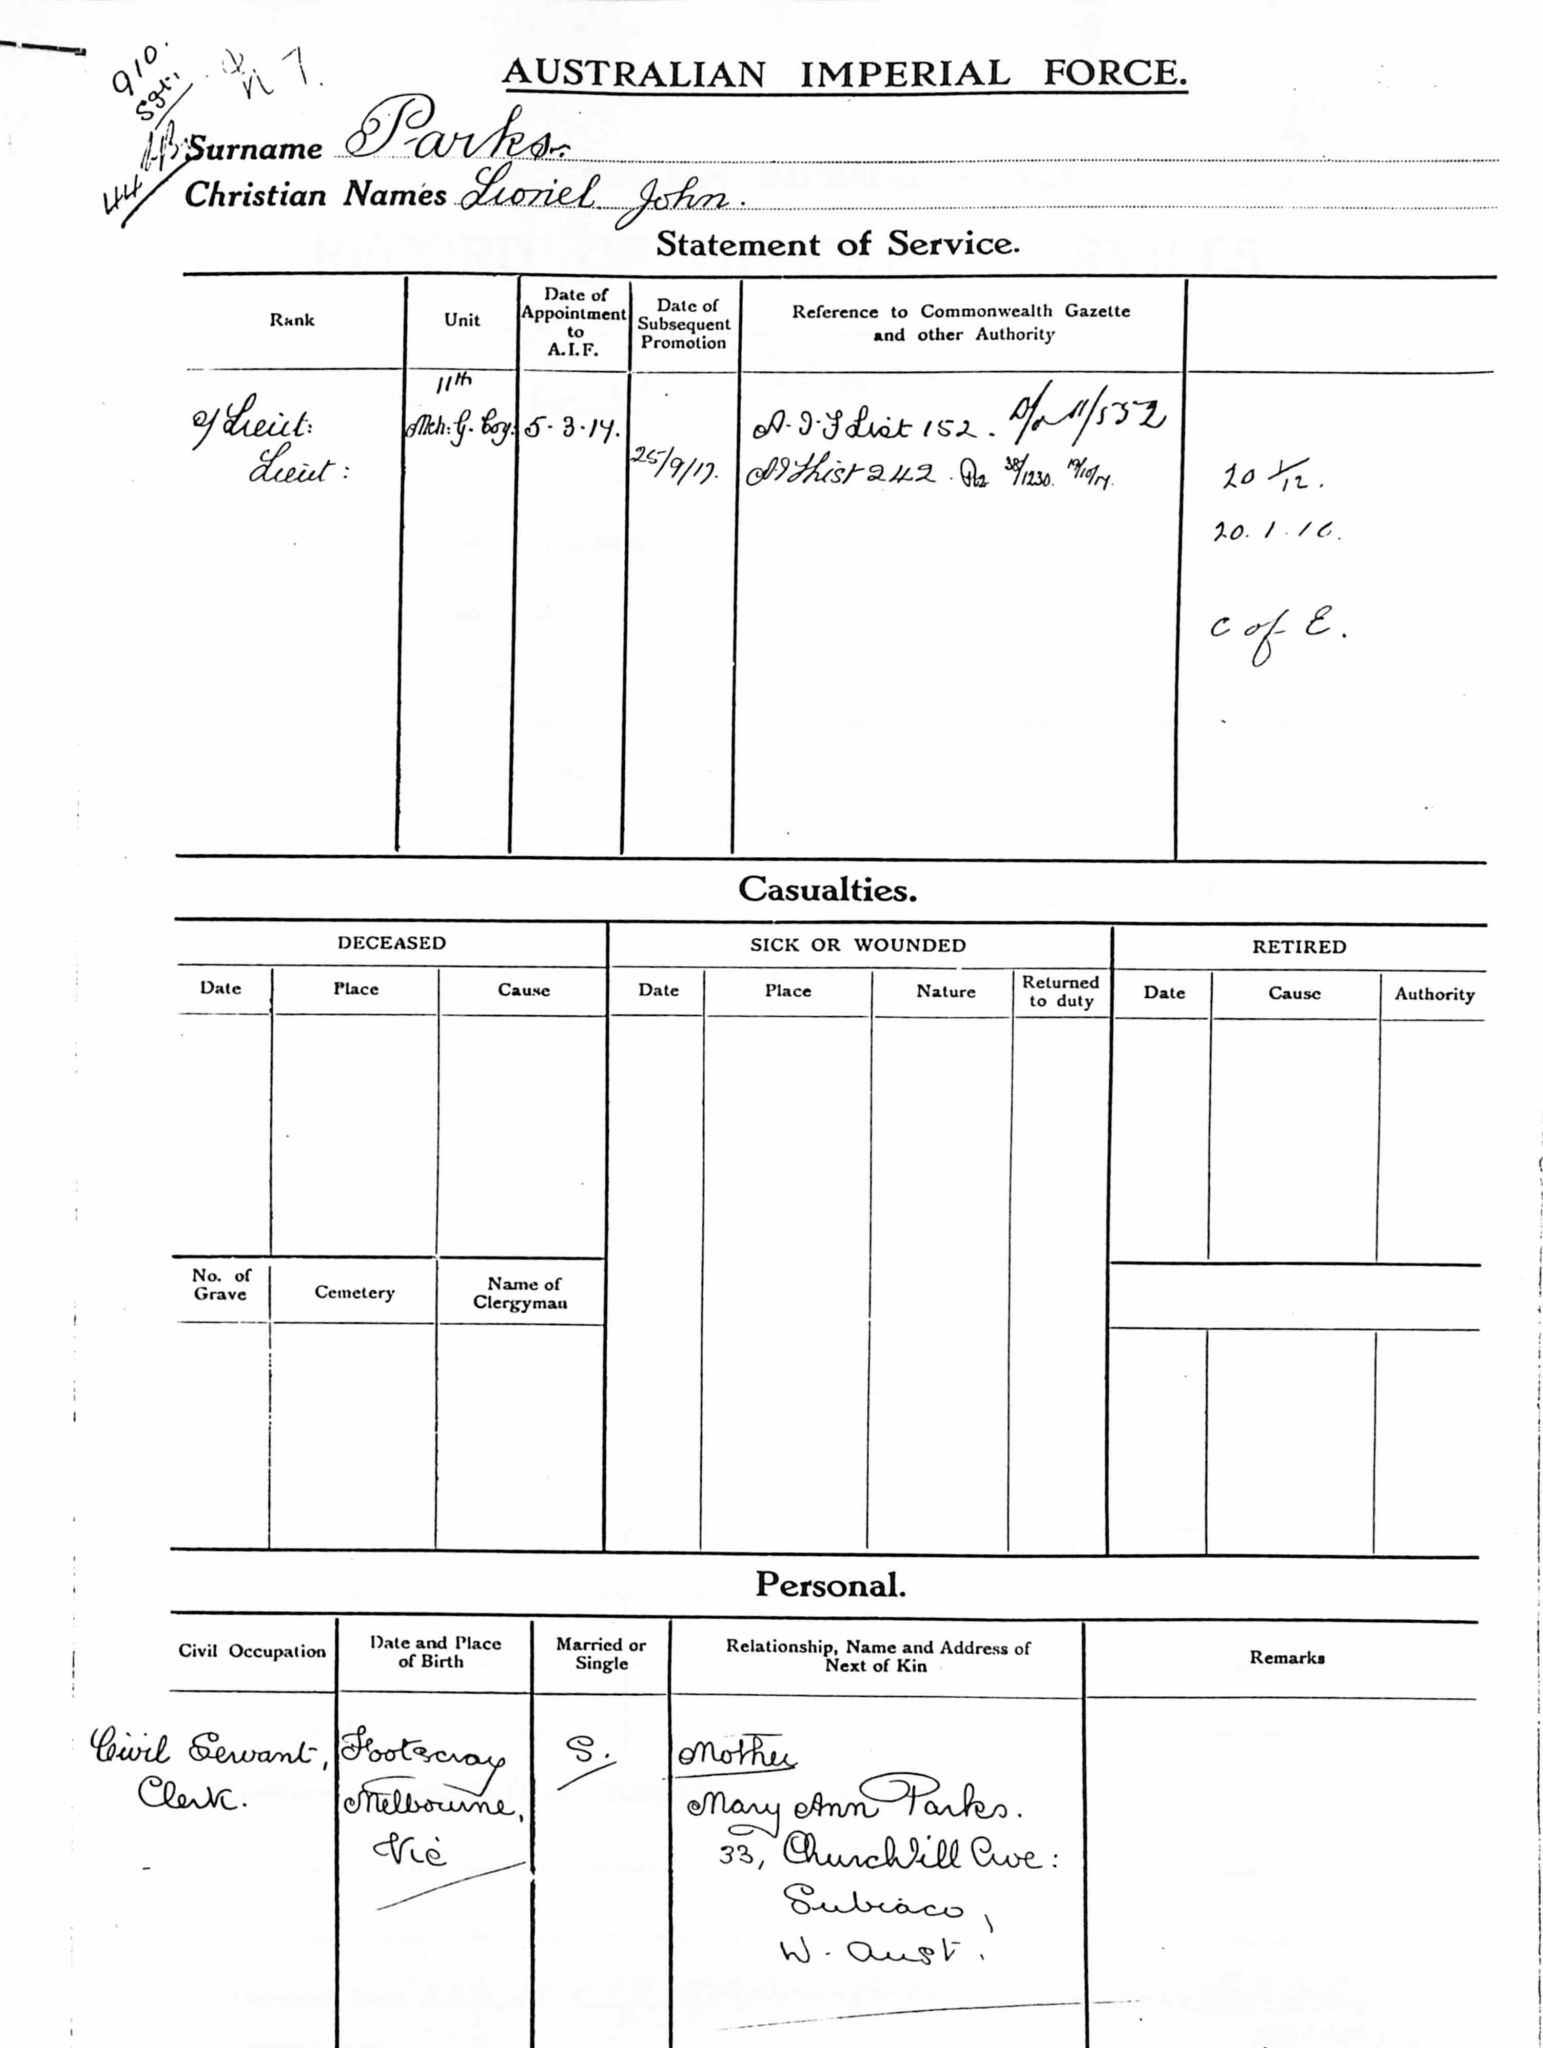 910.
Sgt.
N 7.
44
AUSTRALIAN IMPERIAL FORCE.
Surname Parks.
Christian Names Lionel John.
Statement of Service.
Rank
Unit
Date of Appointment to A.I.F.
Date of Subsequent Promotion
Reference to Commonwealth Gazette and other Authority
11th
2/ Lieut: Mch: G. Coy: 5.3.17. A.I.F List 152. 11/552
Lieut: 25/9/17. AIF List 242. 38/1230. 19/10/17.
20 1/12.
20.1.16.
C of E.
Casualties.
DECEASED
SICK OR WOUNDED
RETIRED
Date Place Cause Date Place Nature Returned to duty Date Cause Authority
No. of Grave
Cemetery
Name of Clergyman
Personal.
Civil Occupation
Date and Place of Birth
Married or Single
Relationship, Name and Address of Next of Kin
Remarks
Civil Servant, Footscray S. Mother
Clerk. Melbourne, Mary Ann Parks.
Vic 33, Churchill Ave:
Subiaco,
W. Aust.